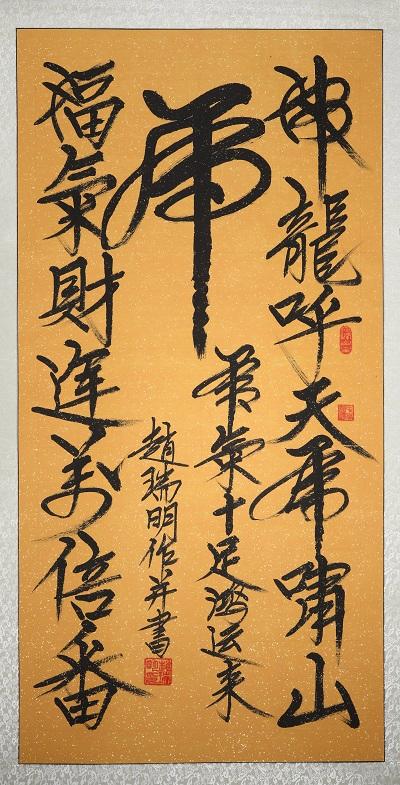 神龍呼天虎嘯山
虎
虎氣十足鴻运来
福氣財運萬倍番
趙瑞明作并書